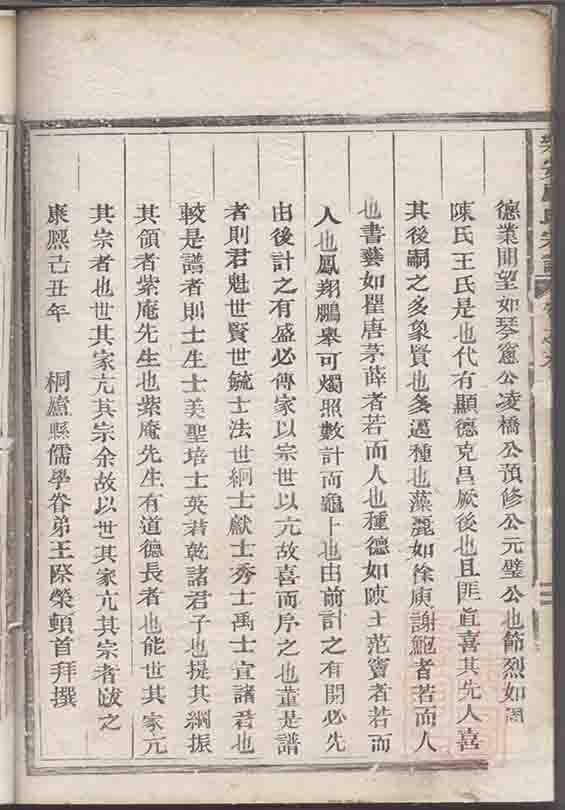 德業聞望如琴窻公凌橋公預修公元璧公也節烈如周
陳氏王氏是也代有顯德克昌厥後也且匪直喜其先人喜
其後嗣之多象賢也多邁種也藻麗如徐庾謝鮑者若而人
也書藝如瞿唐茅薛者若而人也種德如陳王范竇者若而
人也鳳翔鵬舉可燭照數計而龜卜也由前計之有開必先
由後計之有盛必傳家以宗世以亢故喜而序之也董是譜
者則君魁世賢世毓士法世綱士獻士秀士禹士宜諸君也
較是譜者則士生士美聖培士英若乾諸君子也提其綱振
其領者紫庵先生也紫庵先生有道德長者也能世其家亢
其宗者也世其家亢其宗余故以世其家亢其宗者跋之
康熙己丑年 桐廬縣儒學眷弟王際榮頓首拜撰